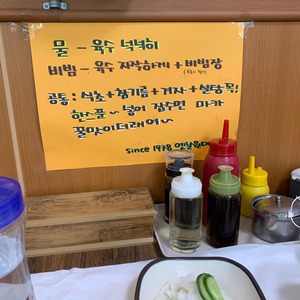 물 - 육수 넉넉히
비빔 - 육수 자작하게 + 비빔장
공통 : 식초 + 참기름 + 겨자 + 설탕 꼭!
한스푼 ~ 넣어 잡수면 마카
꿀맛이더래여~
since 1978 옛날